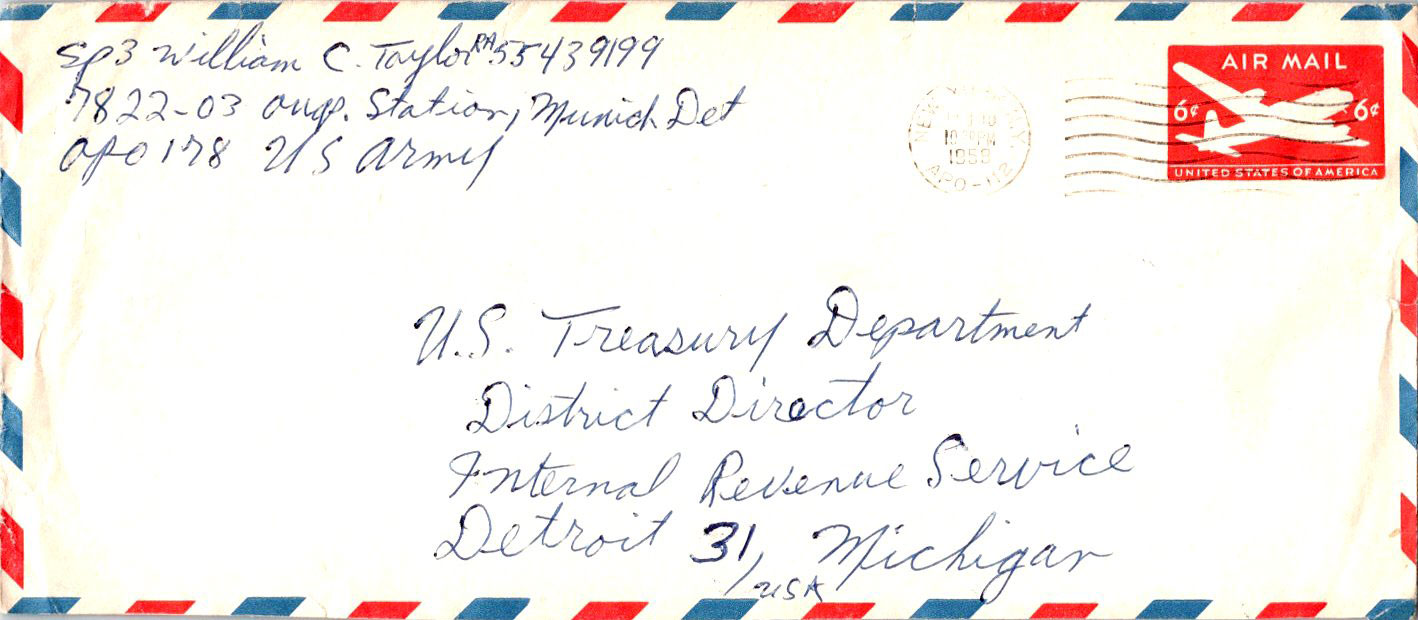 Sp3 William C. Taylor RA 55439199
7822-03 Station, Munich Det
APO 178 US Army
AIR MAIL
6¢ 6¢
UNITED STATES OF AMERICA
NEW N.Y.
10 PM
1958
APO-112
U.S. Treasury Department
District Director
Internal Revenue Service
Detroit 31, Michigan
USA